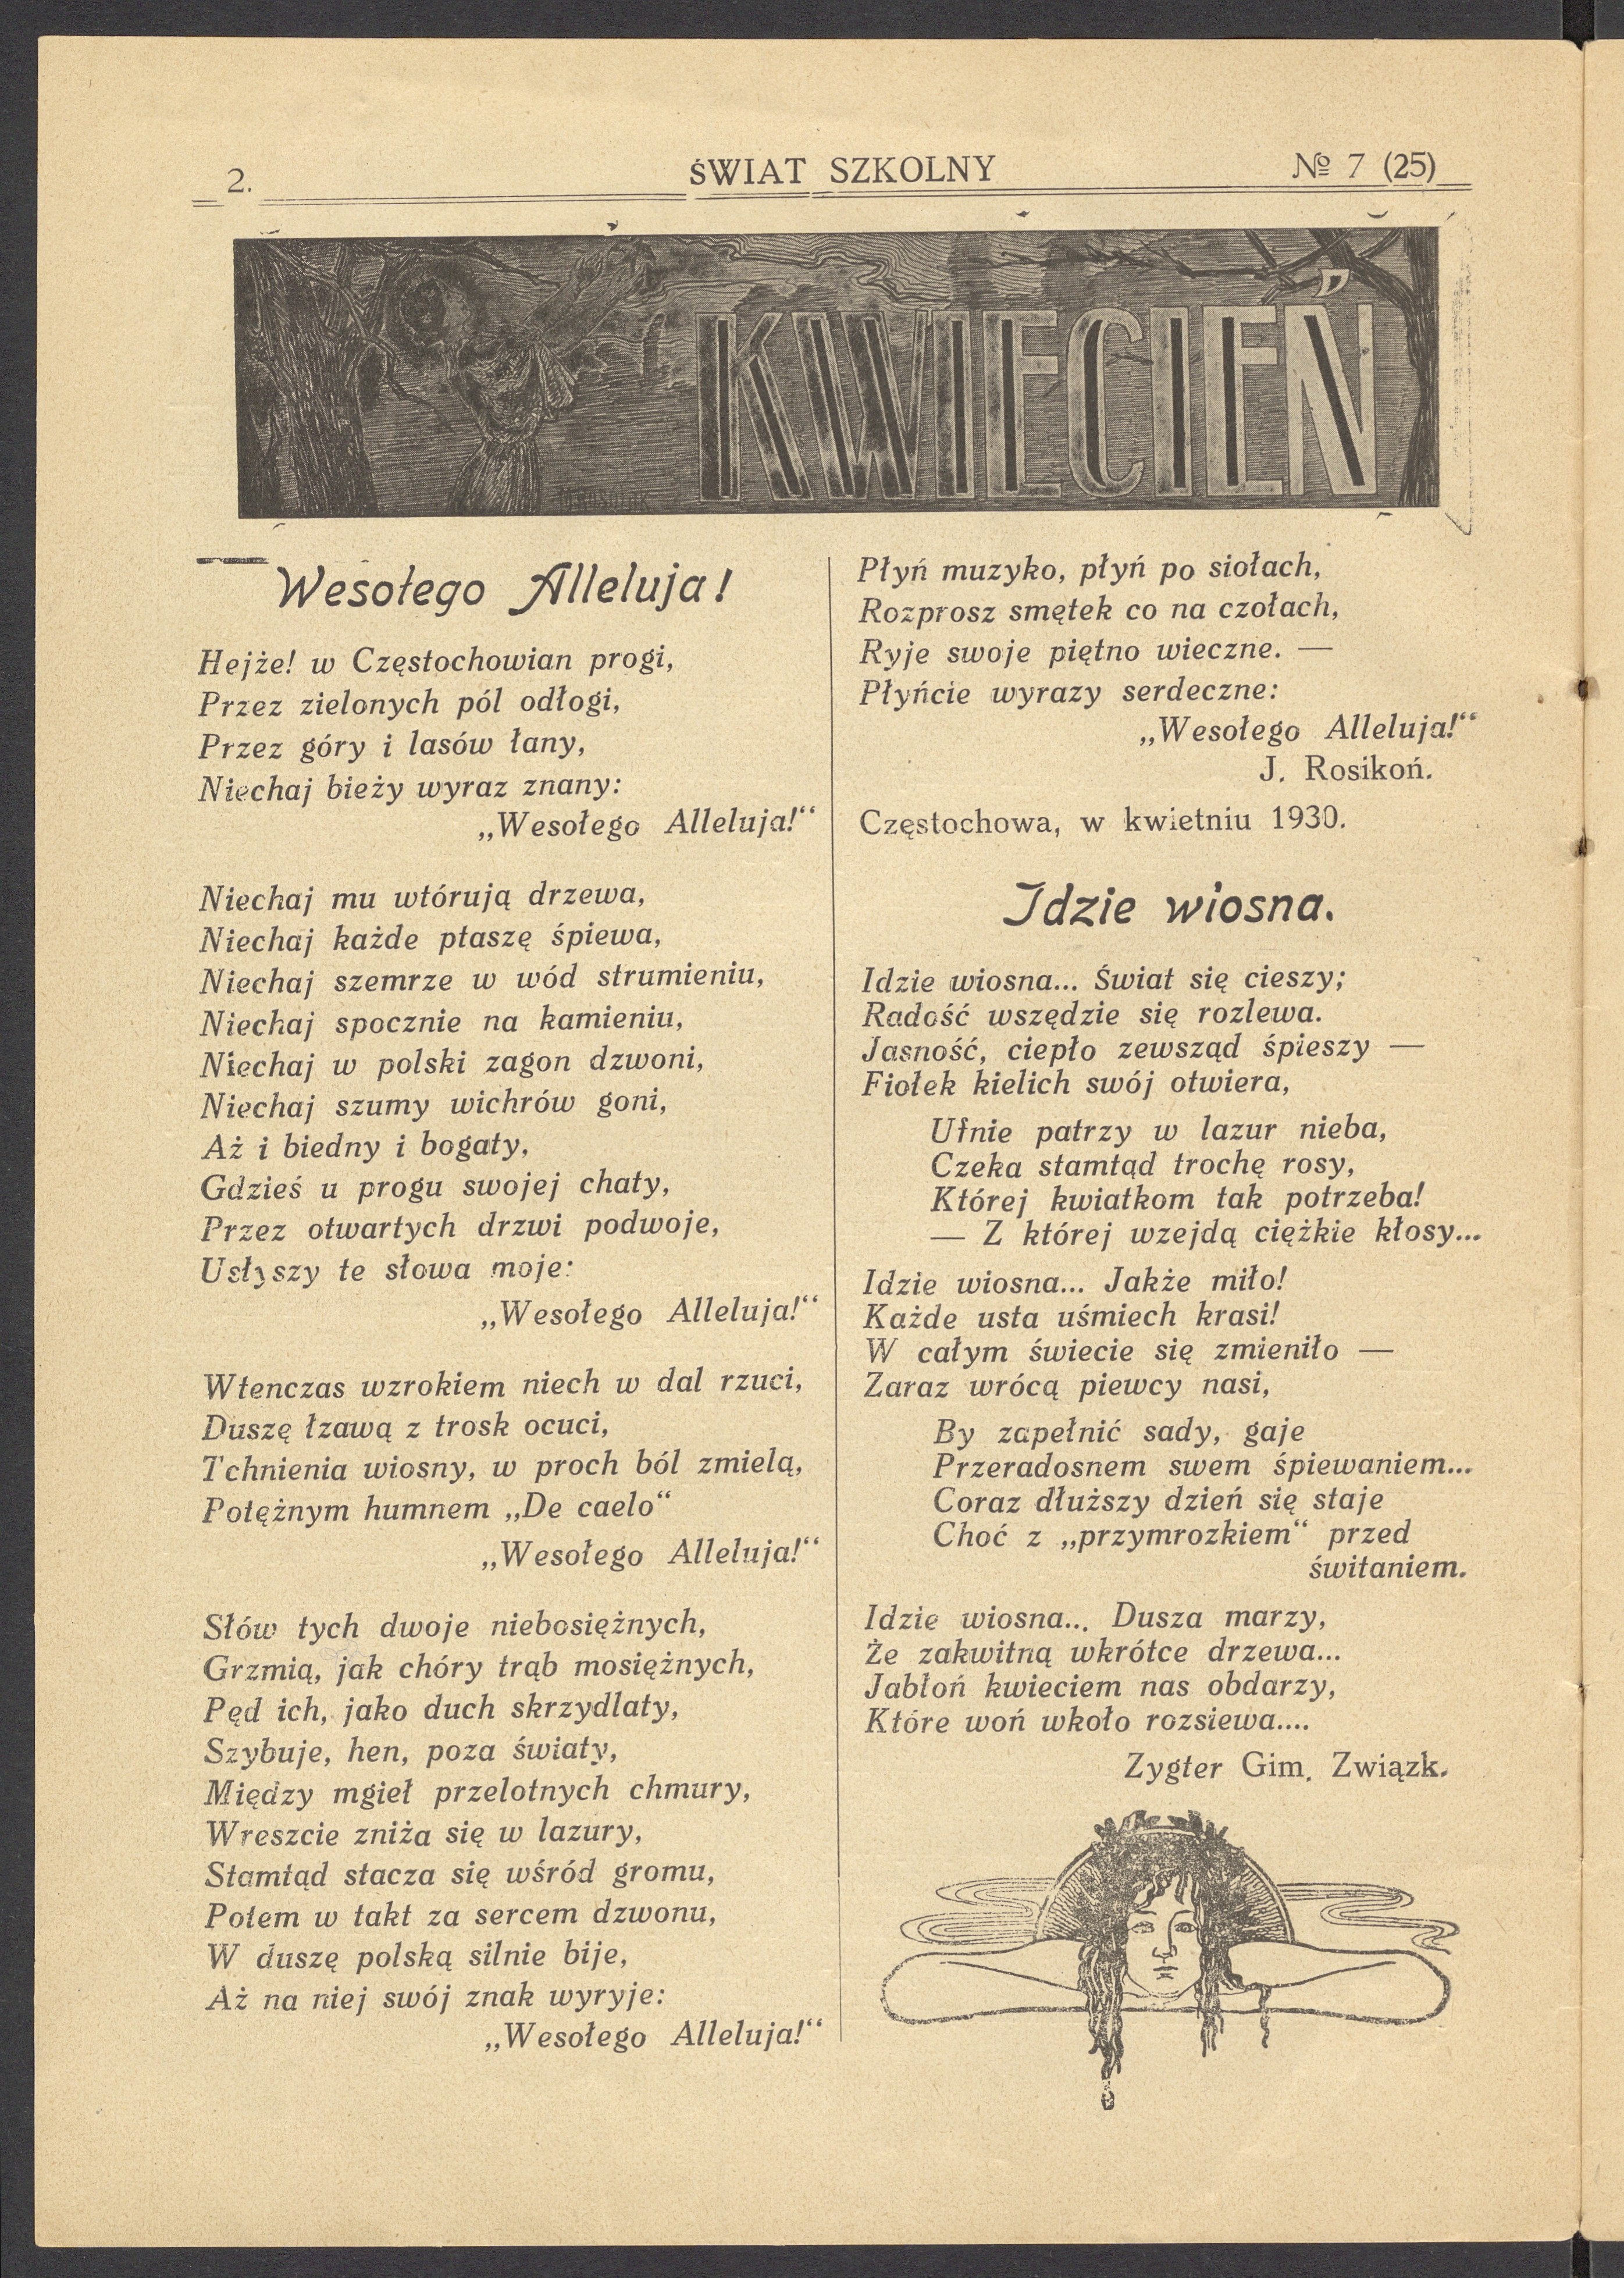 2.
ŚWIAT SZKOLNY
№ 7 (25)
KWIECIEŃ
Wesołego Alleluja!
Hejże! w Częstochowian progi,
Przez zielonych pól odłogi,
Przez góry i lasów łany,
Niechaj bieży wyraz znany:
„Wesołego Alleluja!“
Niechaj mu wtórują drzewa,
Niechaj każde ptaszę śpiewa,
Niechaj szemrze w wód strumieniu,
Niechaj spocznie na kamieniu,
Niechaj w polski zagon dzwoni,
Niechaj szumy wichrów goni,
Aż i biedny i bogaty,
Gdzieś u progu swojej chaty,
Przez otwartych drzwi podwoje,
Usłyszy te słowa moje:
„Wesołego Alleluja!“
Wtenczas wzrokiem niech w dal rzuci,
Duszę łzawą z trosk ocuci,
Tchnienia wiosny, w proch ból zmielą,
Potężnym humnem „De caelo“
„Wesołego Alleluja!“
Słów tych dwoje niebosiężnych,
Grzmią, jak chóry trąb mosiężnych,
Pęd ich, jako duch skrzydlaty,
Szybuje, hen, poza światy,
Między mgieł przelotnych chmury,
Wreszcie zniża się w lazury,
Stamtąd stacza się wśród gromu,
Potem w takt za sercem dzwonu,
W duszę polską silnie bije,
Aż na niej swój znak wyryje:
„Wesołego Alleluja!“
Płyń muzyko, płyń po siołach,
Rozprosz smętek co na czołach,
Ryje swoje piętno wieczne. —
Płyńcie wyrazy serdeczne:
„Wesołego Alleluja!“
J. Rosikoń.
Częstochowa, w kwietniu 1930.
Idzie wiosna.
Idzie wiosna... Świat się cieszy;
Radość wszędzie się rozlewa.
Jasność, ciepło zewsząd śpieszy —
Fiołek kielich swój otwiera,
Ufnie patrzy w lazur nieba,
Czeka stamtąd trochę rosy,
Której kwiatkom tak potrzeba!
— Z której wzejdą ciężkie kłosy...
Idzie wiosna... Jakże miło!
Każde usta uśmiech krasi!
W całym świecie się zmieniło —
Zaraz wrócą piewcy nasi,
By zapełnić sady, gaje
Przeradosnem swem śpiewaniem...
Coraz dłuższy dzień się staje
Choć z „przymrozkiem“ przed
świtaniem.
Idzie wiosna... Dusza marzy,
Że zakwitną wkrótce drzewa...
Jabłoń kwieciem nas obdarzy,
Które woń wkoło rozsiewa....
Zygter Gim. Związk.